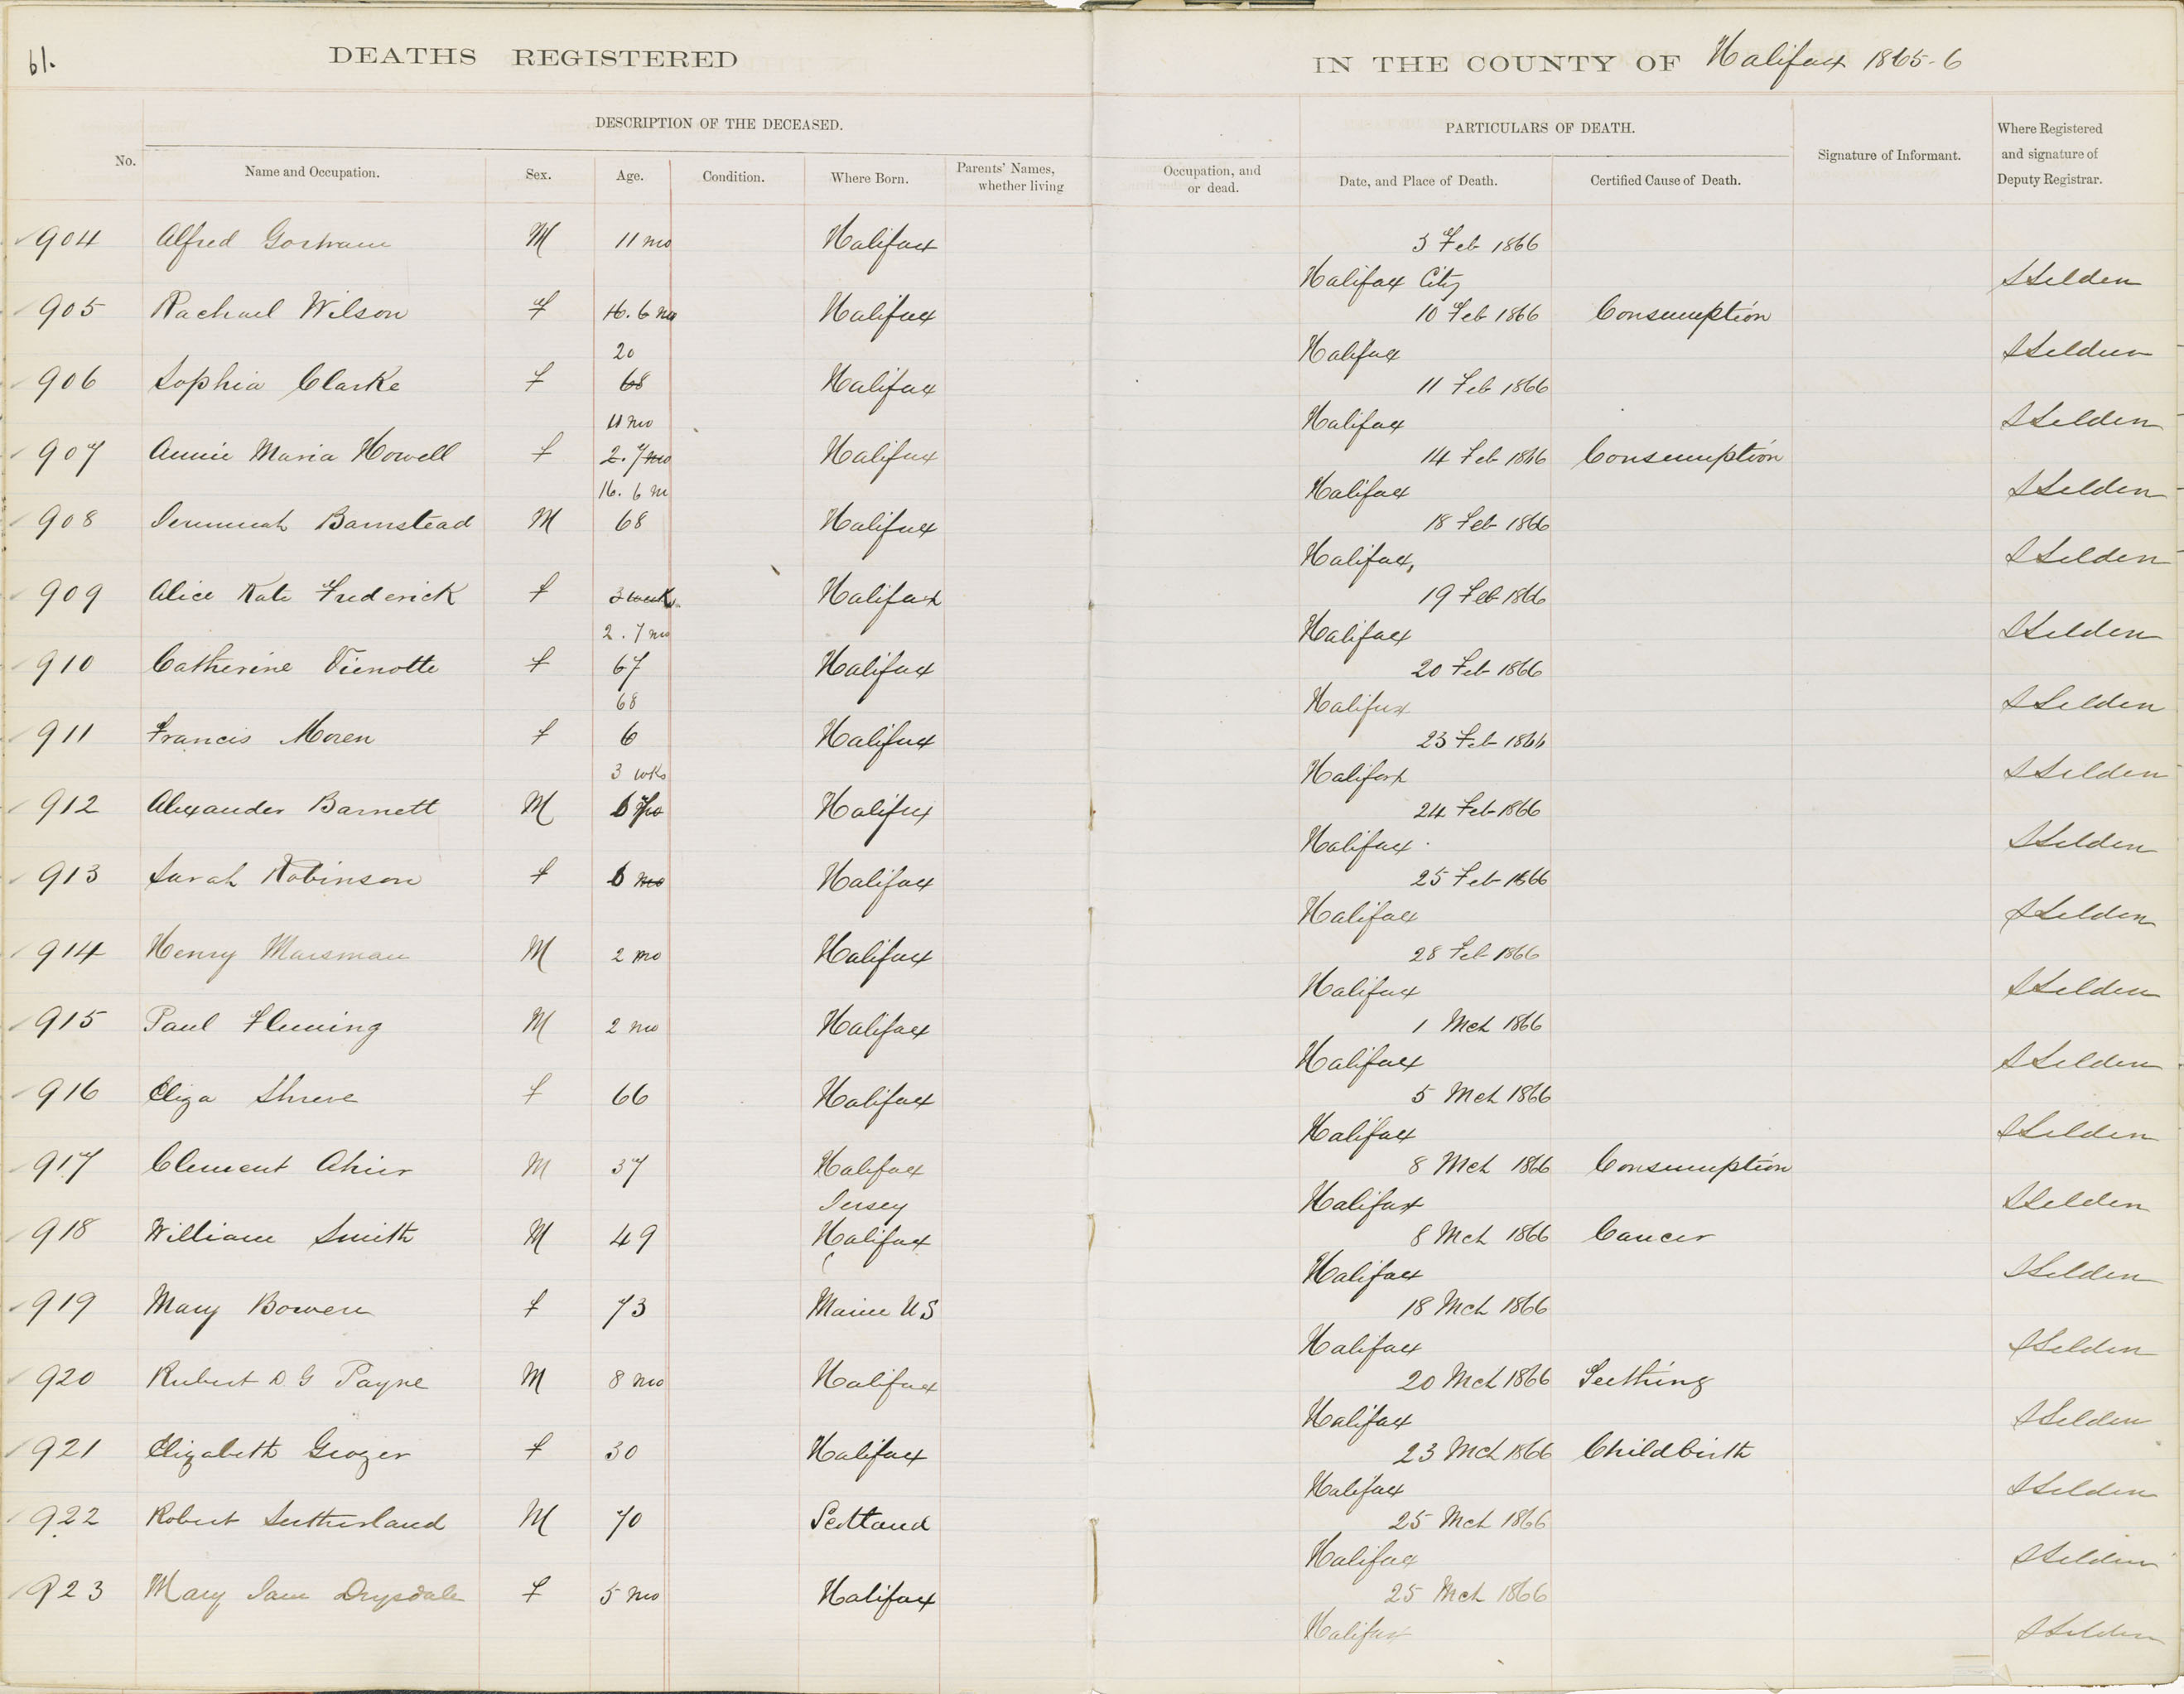 61.
DEATHS REGISTERED IN THE COUNTY OF Halifax 1865-6
DESCRIPTION OF THE DECEASED. PARTICULARS OF DEATH.
No. Name and Occupation. Sex. Age. Condition. Where Born. Parents' Names, whether living Occupation, and or dead. Date, and Place of Death. Certified Cause of Death. Signature of Informant. Where Registered and signature of Deputy Registrar.
904 Alfred Gorham M 11 mo Halifax 3 Feb 1866
Halifax City SSelden
905 Rachael Wilson F 16. 6 mo Halifax 10 Feb 1866 Consumption
20 Halifax SSelden
906 Sophia Clarke F 68 Halifax 11 Feb 1866
11 mo Halifax SSelden
907 Annie Maria Howell F 2. 7 mo Halifax 14 Feb 1866 Consumption
16. 6 m Halifax SSelden
908 Jeremiah Barnstead M 68 Halifax 18 Feb 1866
Halifax, SSelden
909 Alice Kate Frederick F 3 week Halifax 19 Feb 1866
2. 7 mo Halifax SSelden
910 Catherine Vienotte F 67 Halifax 20 Feb 1866
68 Halifax SSelden
911 Francis Moren F 6 Halifax 23 Feb 1866
3 wks Halifax SSelden
912 Alexander Barnett M 6 Halifax 24 Feb 1866
Halifax SSelden
913 Sarah Robinson F 6 mo Halifax 25 Feb 1866
Halifax SSelden
914 Henry Marsman M 2 mo Halifax 28 Feb 1866
Halifax SSelden
915 Paul Fleming M 2 mo Halifax 1 Mch 1866
Halifax SSelden
916 Eliza Shreve F 66 Halifax 5 Mch 1866
Halifax SSelden
917 Clement Ahier M 37 Halifax 8 Mch 1866 Consumption
Jersey Halifax SSelden
918 William Smith M 49 Halifax 8 Mch 1866 Cancer
Halifax SSelden
919 Mary Bowen F 73 Maine US 18 Mch 1866
Halifax SSelden
920 Rubert D G Payne M 8 mo Halifax 20 Mch 1866 Teething
Halifax SSelden
921 Elizabeth Grozer F 30 Halifax 23 Mch 1866 Childbirth
Halifax SSelden
922 Robert Sutherland M 70 Scotland 25 Mch 1866
Halifax SSelden
923 Mary Jane Drysdale F 5 mo Halifax 25 Mch 1866
Halifax SSelden